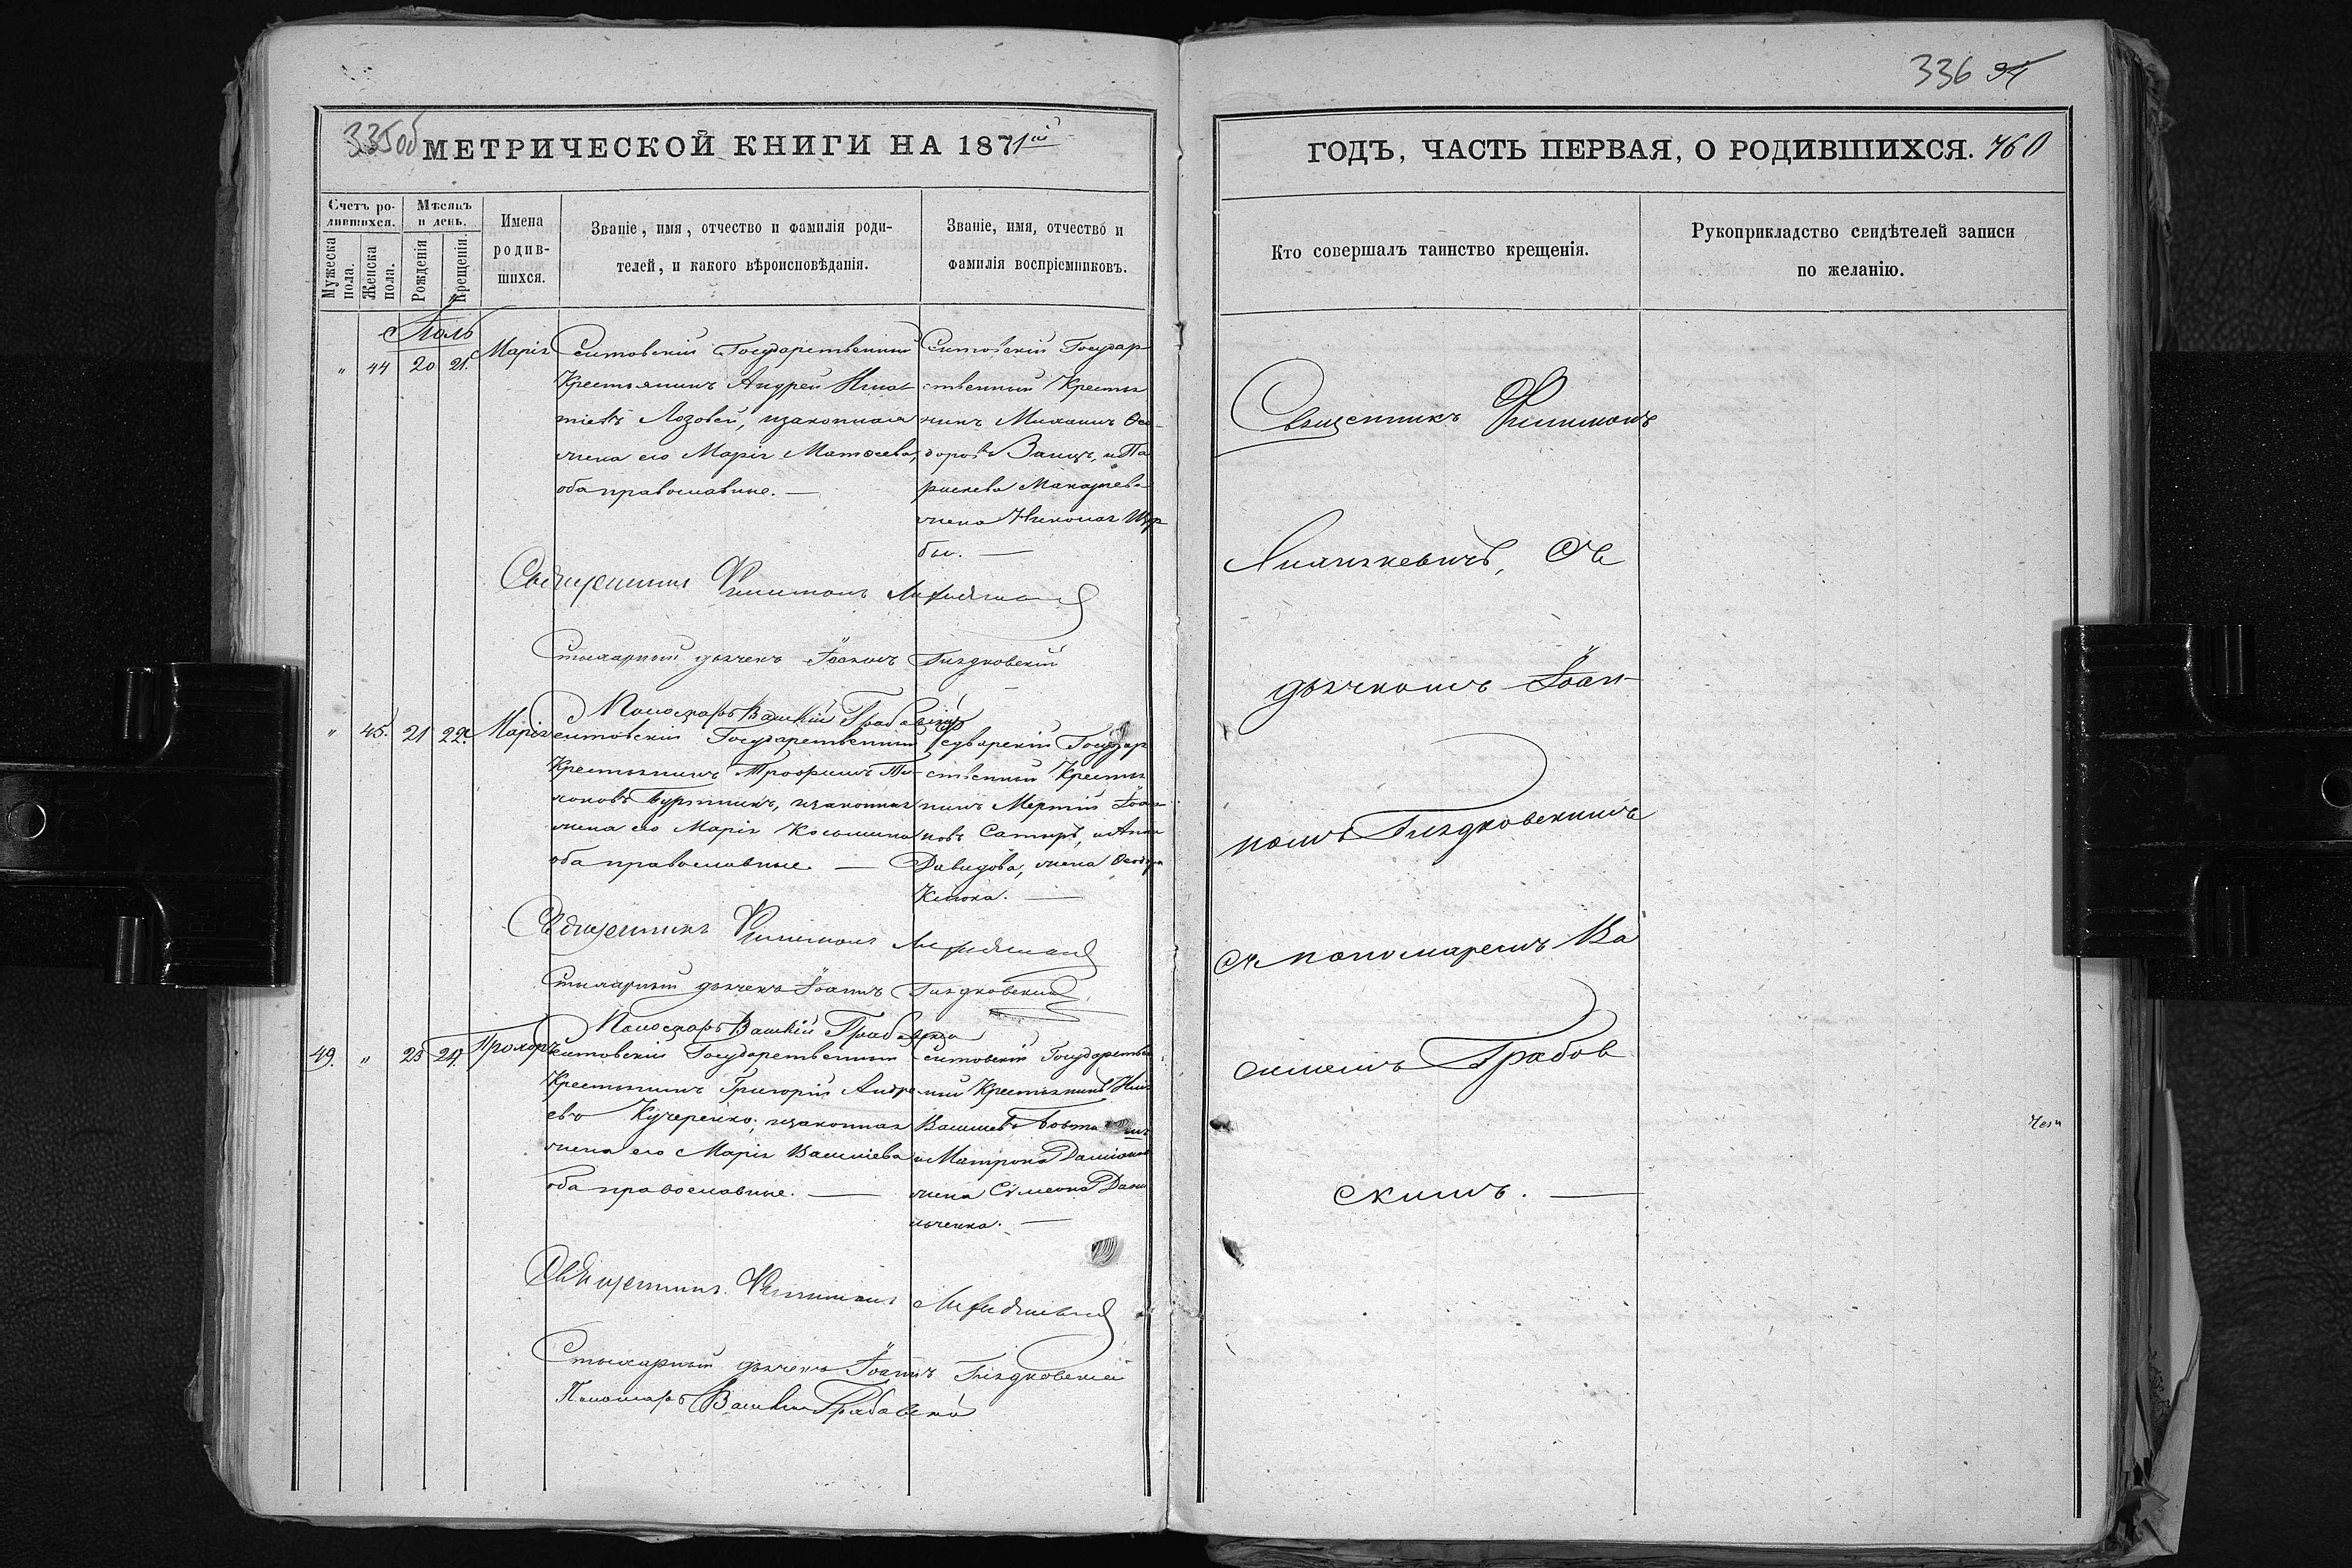 335об
МЕТРИЧЕСКОЙ КНИГИ НА 1871й
Счетъ ро-
дившихся.
Мѣсяцъ
и день.
Мужеска
пола.
Женска
пола.
Рожденія
Крещенія.
Имена
родив-
шихся.
Званіе, имя, отчество и фамилія роди-
телей, и какого вѣроисповѣданія.
Званіе, имя, отчество и
фамилія воспріемниковъ.
Іюль
" 44 20 21. Марія
Ситовскій Государственный
Крестьянинъ Андрей Игна-
тіевъ Лозовой, изаконная
жена его Марія Матѳеева,
оба православные. —
Ситовскій Государ
ственный Крестья
нинъ Михаилъ Ѳео-
доровъ Заицъ, и Па
раскева Макарьева
жена Николая
бы. —
Священникъ Филимонъ
Стихарный дьячекъ Іоаннъ Гиздковскій
Пономарь Василій Грабовскій
" 45. 21 22. Марія
Ситовскій Государственный
Крестьянинъ Трофимъ Ти-
моновъ изаконная
жена его Марія Косьмина
оба православные. —
Государ
ственный Крестья
нинъ Іоан
новъ и Анна
Давидова, жена Ѳеодора
Клюка. —
Священникъ Филимонъ
Стихарный дьячекъ Іоаннъ Гиздковскій
Пономарь Василій Грабовскій
49. " 23 24. Прохоръ
Ситовскій Государственный
Крестьянинъ Григорій Андре
евъ Кучеренко, изаконная
жена его Марія Василіева
оба православные. —
Ситовскій Государствен
ный Крестьянинъ
Василіевъ
и Матрона Даміанова
жена Сѵмеона Дани
льченка. —
Священникъ Филимонъ
Стихарный дьячекъ Іоаннъ Гиздковскій
Пономарь Василій Грабовскій
336 94
ГОДЪ, ЧАСТЬ ПЕРВАЯ, О РОДИВШИХСЯ. 460
Кто совершалъ таинство крещенія.
Рукоприкладство свидѣтелей записи
по желанію.
Священникъ Филимонъ
Съ
дьячкомъ Іоан-
номъ Гиздковскимъ
и пономаремъ Ва
силіемъ Грабов
скимъ. —